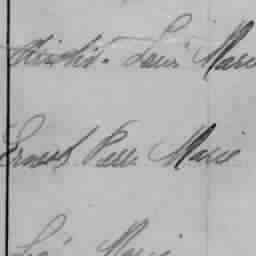 Louis Marie
Ernest Pierre Marie
Marie